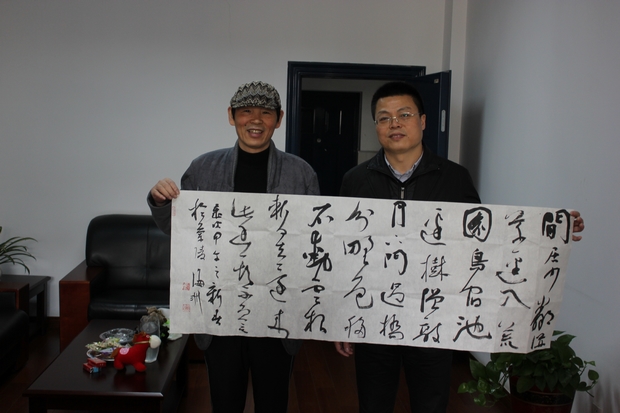 閒居少鄰並
草徑入荒
園鳥宿池
邊樹僧敲
月下門過橋
分野色移
石動雲根
暫去還來
此幽期不負言
歲次甲午之新春